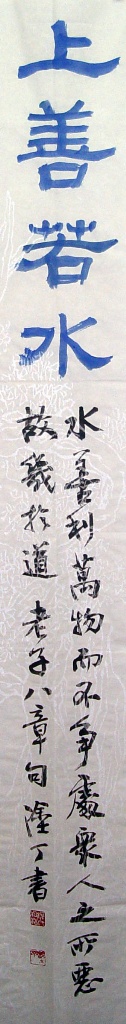 上善若水
水善利萬物而不争處衆人之所惡
故幾於道 老子八章句 塗丁書